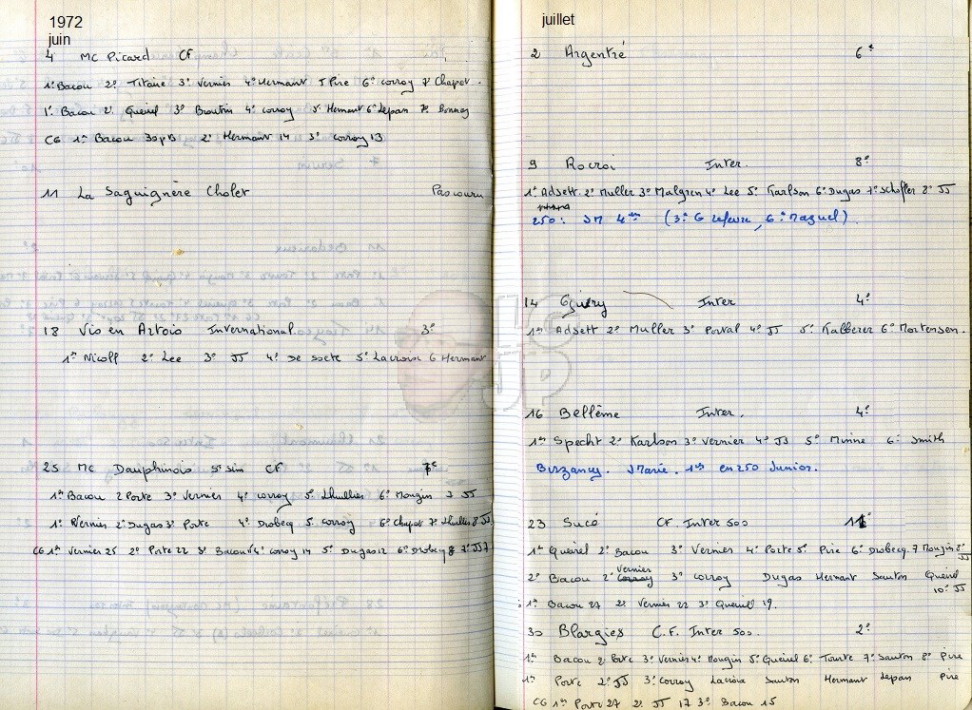 1972
juin
4 MC Picard CF
1° Bacou 2° Titaire 3° Vernier 4° Hermant 5 Pire 6° Corroy 7° Chapot.
1° Bacou 2° Queirel 3° Boutin 4° Corroy 5° Hermant 6° Lepan 7° Bonnay
CG 1° Bacou 30 pts 2° Hermant 14 3° Corroy 13
11 La Saguignère Cholet Pas couru
18 Vis en Artois International 3°
1er Nicoll 2° Lee 3° JJ 4° de Socte 5° Lacroix 6 Hermant
25 MC Dauphinois CF 7e
1er Bacou 2 Porte 3° Vernier 4° Corroy 5° Lhullier 6° Mougin 7 JJ
1° Vernier 2° Dugas 3° Porte 4° Drobecq 5 Corroy 6° Chapot 7° Lhullier 8 JJ
CG 1er Vernier 25 2° Porte 22 3° Bacou 4° Corroy 14 5° Dugas 12 6° Drobecq 8 7° JJ 7
juillet
2 Argentré 6°
9 Rocroi Inter. 8°
1er Adsett 2° Muller 3° Malgren 4° Lee 5° Karlson 6° Dugas 7° Schofler 8° JJ
250: JM 4eme (3° G Lefevre, 6° Maguel)
14 Guery Inter 4°
1er Adsett 2° Muller 3° Porval 4° JJ 5° Kalberer 6° Mortensen.
16 Bellême Inter. 4°
1er Specht 2° Karlson 3° Vernier 4° JJ 5° Minne 6° Smith
Buzancy. JMarie. 1er en 250 Junior.
23 Sucé CF. Inter 500 11°
1er Queirel 2° Bacou 3° Vernier 4° Porte 5° Pire 6° Drobecq. 7 Mougin 8° JJ
2° Bacou 2° Vernier 3° Corroy Dugas Hermant Santon Queirel 10° JJ
1er Bacou 27 2° Vernier 22 3° Queirel 19.
30 Blargies C.F. Inter 500. 2°
1er Bacou 2 Porte 3° Vernier 4° Mougin 5° Queirel 6° Tourte 7° Santon 8° Pire
1er Porte 2° JJ 3° Corroy Lacroix Santon Hermant Lepan Pire
CG 1er Porte 27 2° JJ 17 3° Bacou 15